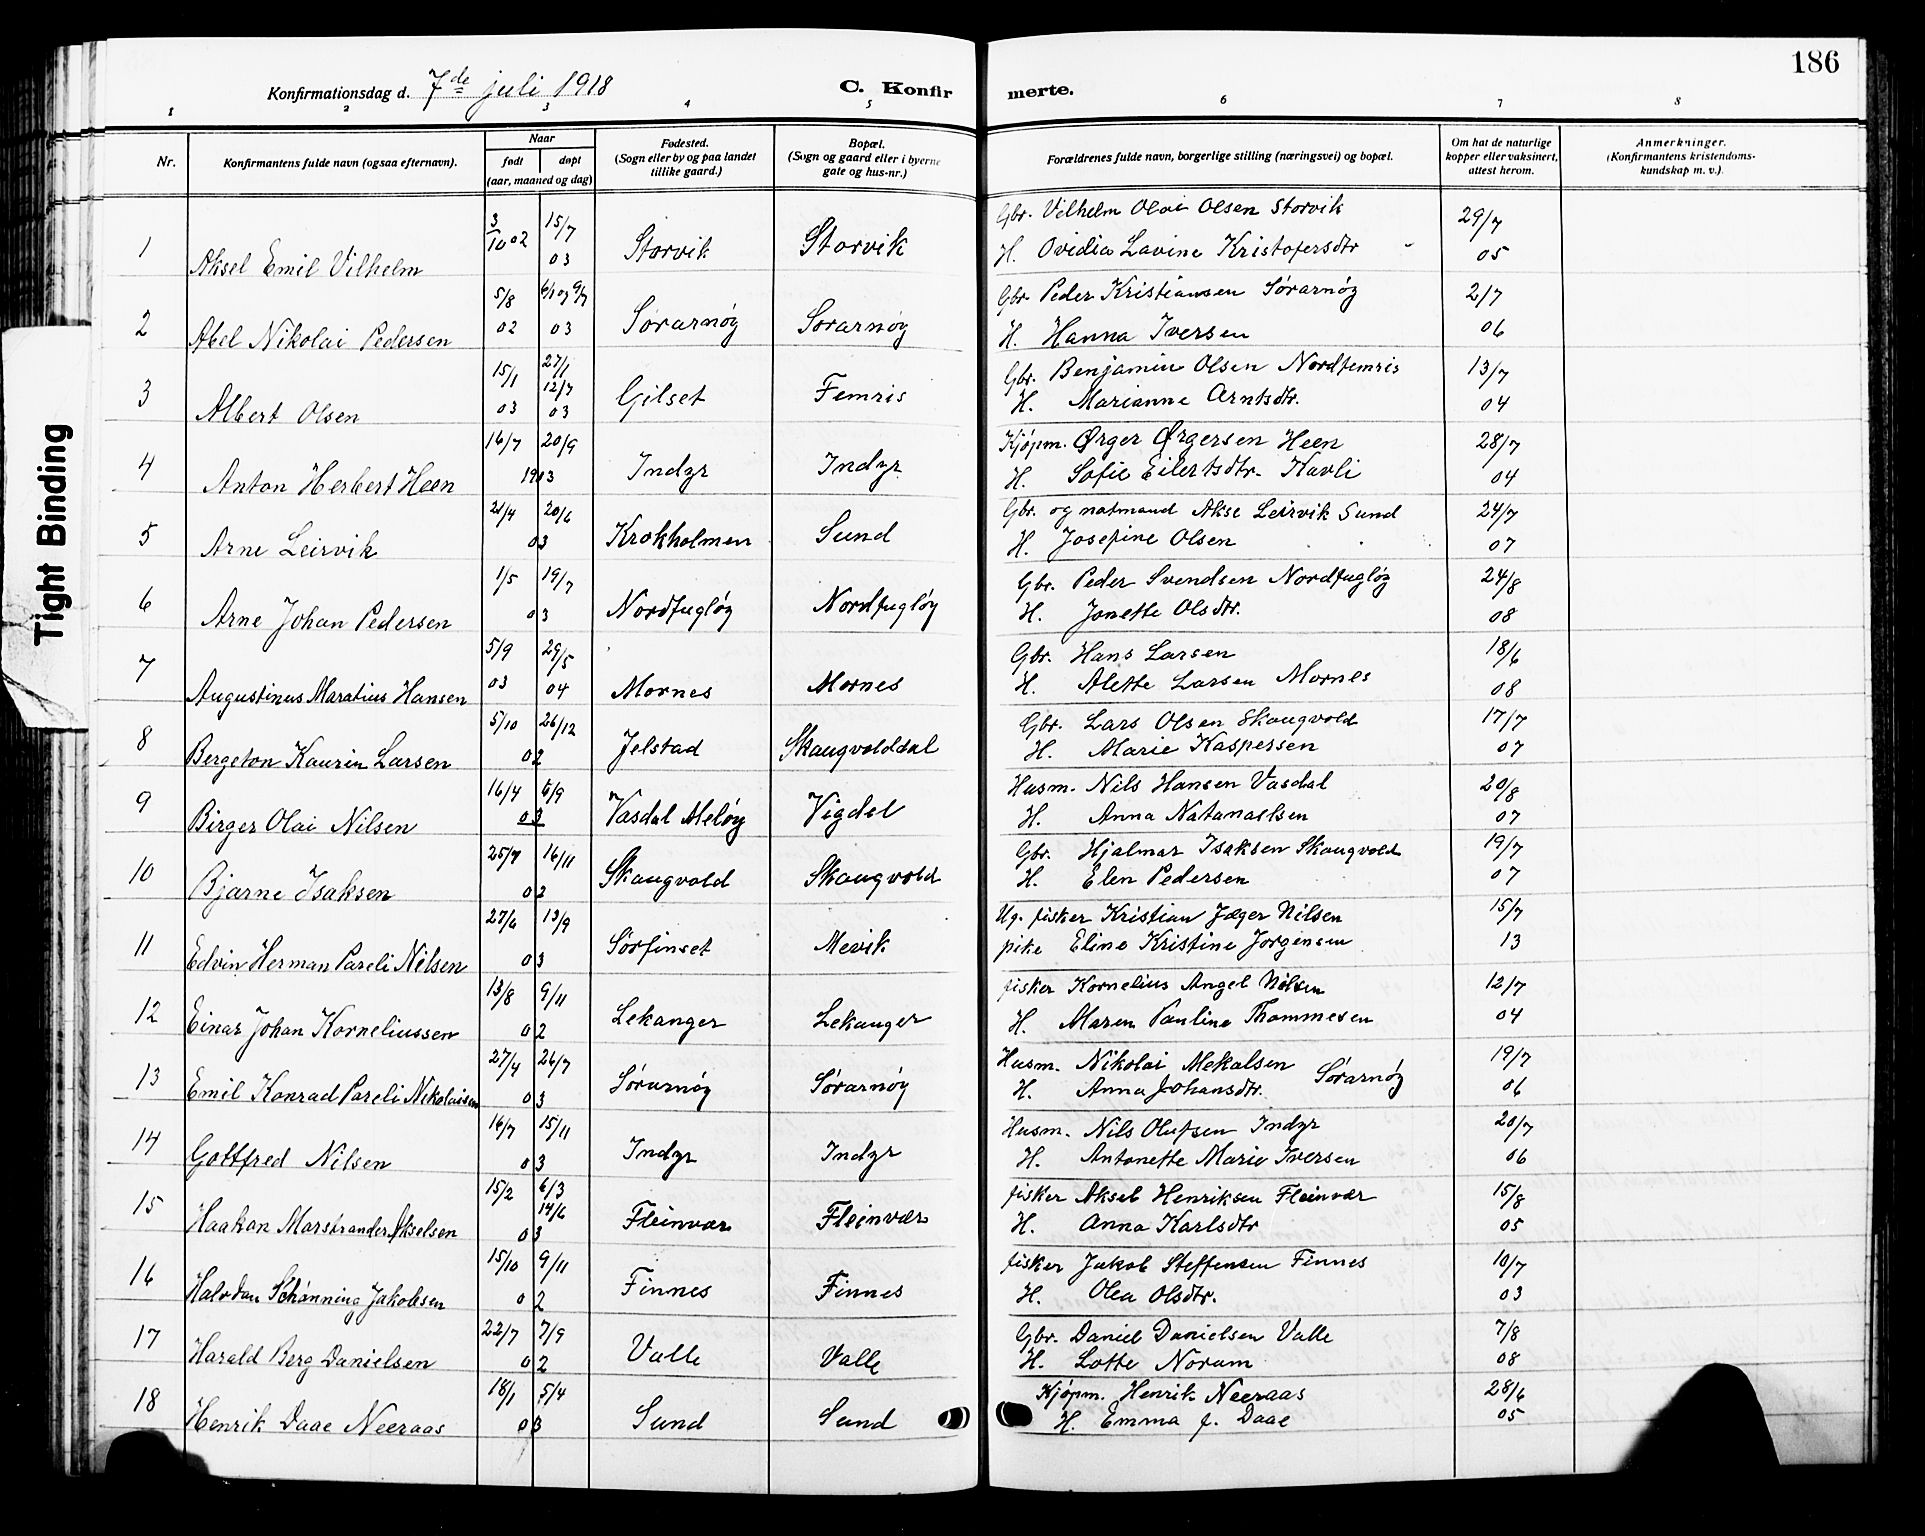 186
Konfirmationsdag d. 7de juli 1918 C. Konfir merte.
1 2 3 4 5 6 7 8
Nr. Konfirmantens fulde navn (ogsaa efternavn). Naar født døpt (aar, maaned og dag) Fødested. (Sogn eller by og paa landet tillike gaard.) Bopæl. (Sogn og gaard eller i byerne gate og hus-nr.) Forældrenes fulde navn, borgerlige stilling (næringsvei) og bopæl. Om hat de naturlige kopper eller vaksinert, attest herom. Anmerkninger. (Konfirmantens kristendomskundskap m. v.).
Tight Binding
1 Aksel Emil Vilhelm 3/10 02 15/7 03 Storvik Storvik Gbr. Vilhelm Olai Olsen Storvik 29/7
H. Ovidia Lavine Kristofersdtr 05
2 Abel Nikolai Pedersen 5/8 02 03 Sørarnøy Sørarnøy Gbr. Peder Kristiansen Sørarnøy 2/7
H. Hanna Iversen 06
3 Albert Olsen 15/1 03 27/1 12/7 03 Gilset Femris Gbr. Benjamin Olsen Nordfemris 13/7
H. Marianne Arntsdtr. 04
4 Anton Herbert Heen 16/7 20/9 1903 Indyr Indyr Kjøpm. Ørger Ørgersen Heen 28/7
H. Sofie Eilertsdtr. Kavli 04
5 Arne Leirvik 21/4 20/6 03 Krokholmen Sund Gbr. og notmand Akse Leirvik Sund 24/7
H. Josefine Olsen 07
6 Arne Johan Pedersen 1/5 19/7 03 Nordfugløy Nordfugløy Gbr. Peder Svendsen Nordfugløy 24/8
H. Jonette Olsdtr. 08
7 Augustinus Maratius Hansen 5/9 03 29/5 04 Mornes Mornes Gbr. Hans Larsen 18/6
H. Alette Larsen Mornes 08
8 Bergeton Kaurin Larsen 5/10 26/12 02 Jelstad Skaugvolddal Gbr. Lars Olsen Skaugvold 17/7
H. Marie Kaspersen 07
9 Birger Olai Nilsen 16/4 6/9 03 Vasdal Meløy Vigdel Husm. Nils Hansen Vasdal 20/8
H. Anna Natanaelsen 07
10 Bjarne Isaksen 25/7 16/11 02 Skaugvold Skaugvold Gbr. Hjalmar Isaksen Skaugvold 19/7
H. Elen Pedersen 07
11 Edvin Herman Pareli Nilsen 27/6 13/9 03 Sørfinset Mevik Ug. fisker Kristian Jæger Nilsen 15/7
pike Eline Kristine Jørgensen 13
12 Einar Johan Korneliussen 13/8 9/11 02 Lekanger Lekanger fisker Kornelius Angel Nilsen 12/7
H. Maren Pauline Thommesen 04
13 Emil Konrad Pareli Nikolaisen 27/4 26/7 03 Sørarnøy Sørarnøy Husm. Nikolai Mekalsen Sørarnøy 19/7
H. Anna Johansdtr. 06
14 Gottfred Nilsen 16/7 15/11 03 Indyr Indyr Husm. Nils Olufsen Indyr 20/7
H. Antonette Marie Iversen 06
15 Haakon Marstrander Akselsen 15/2 6/3 14/6 03 Fleinvær Fleinvær fisker Aksel Henriksen Fleinvær 15/8
H. Anna Karlsdtr 05
16 Halvdan Schønning Jakobsen 15/10 9/11 02 Finnes Finnes fisker Jakob Steffensen Finnes 10/7
H. Olea Olsdtr. 03
17 Harald Berg Danielsen 22/7 7/9 02 Valle Valle Gbr. Daniel Danielsen Valle 7/8
H. Lotte Norum 08
18 Henrik Daae Neeraas 18/1 5/4 03 Sund Sund Kjøpm. Henrik Neeraas 28/6
H. Emma f. Daae 05